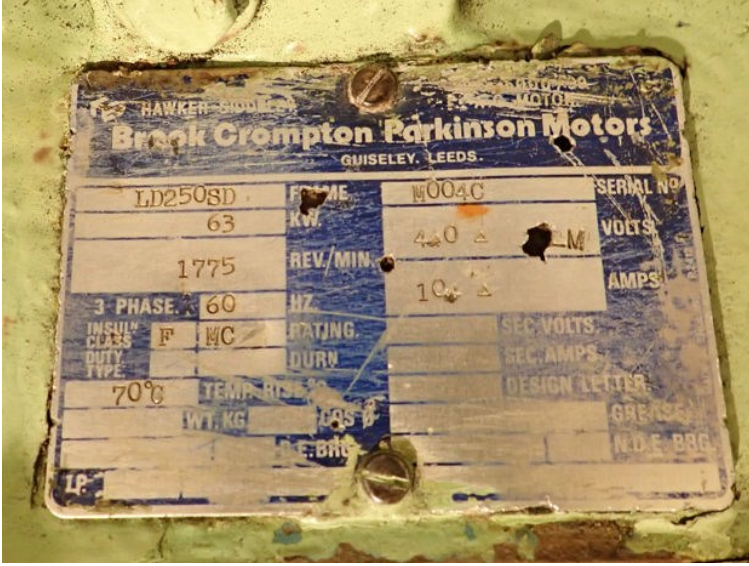 HAWKER SIDDELEY
MOTOR
Brook Crompton Parkinson Motors
GUISELEY, LEEDS.
LD250SD FRAME M004C SERIAL Nº
63 KW. VOLTS
1775 REV./MIN. AMPS
3 PHASE. 60 HZ.
INSULN CLASS F MC RATING. SEC. VOLTS.
DUTY TYPE DURN SEC. AMPS.
70°C TEMP. RISE DESIGN LETTER
WT. KG COS Ø GREASE
D.E. BRG N.D.E. BRG
I.P.